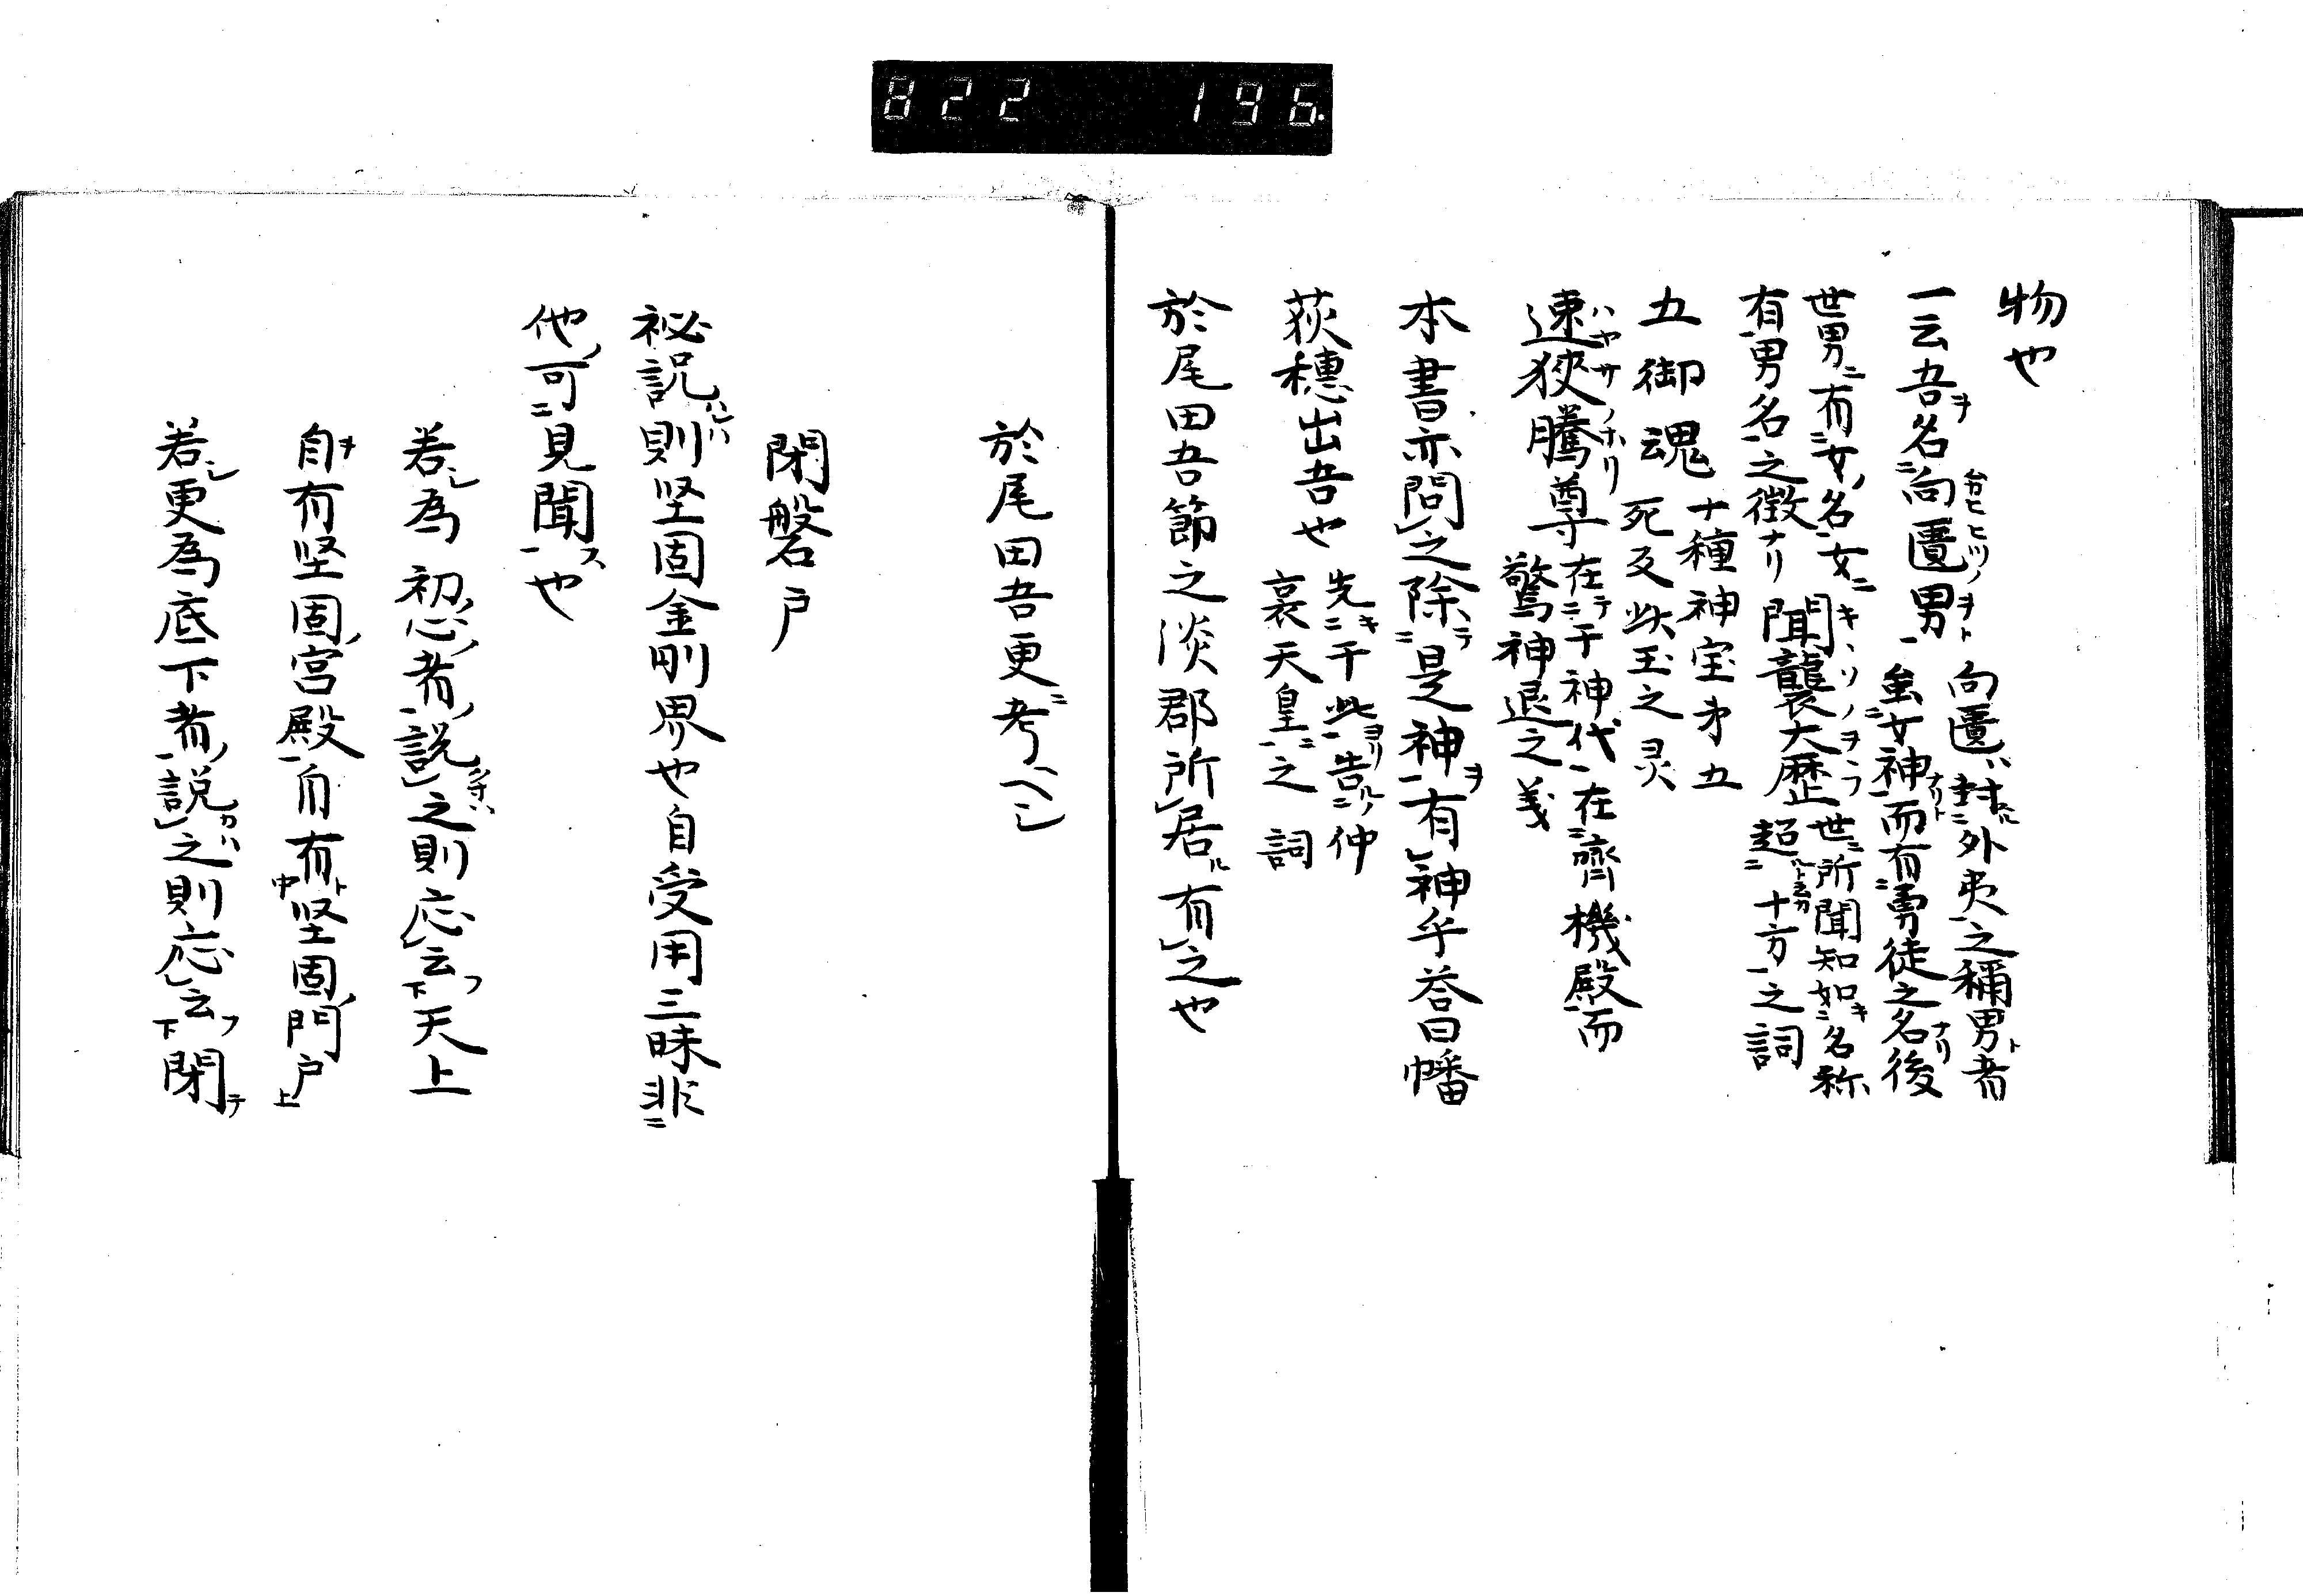 822 196.
物也
一云吾名向匱男
向匱ハ対外夷之稱男者
虽女神而有勇徒之名後
世男有女名女
世所聞知如名称
有男名之徴ナリ
聞襲大歴
超十方之詞
五御魂
十種神宝才五
死反此玉之灵
速狭騰尊
在于神代在齊機殿而
驚神退之義
本書亦問之除是神有神乎荅曰幡
荻穗出吾也
先于此告仲
哀天皇之詞
於尾田吾節之淡郡所居有之也
於尾田吾更考ヘシ
閇磐戸
祕説則坚固金剛界也自受用三昧非
他可見聞也
若為初心者説之則応云天上
自有坚固宮殿自有坚固門戸
若更為底下者説之則応云閇